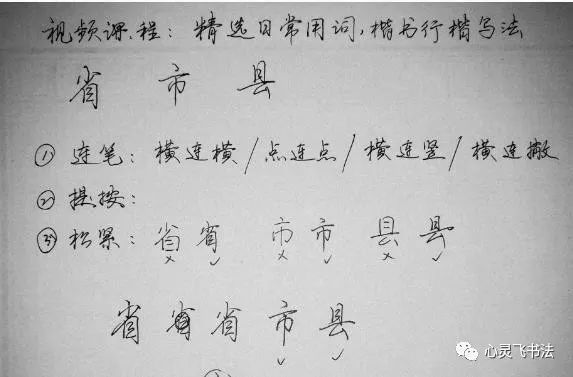 视频课程：精选日常用词，楷书行楷写法
省 市 县
① 连笔：横连横/点连点/横连竖/横连撇
② 提按：
③ 松紧：省省 市市 县县
× ✓ × ✓ × ✓
省 省 省 市 县
✓ ✓
心灵飞书法